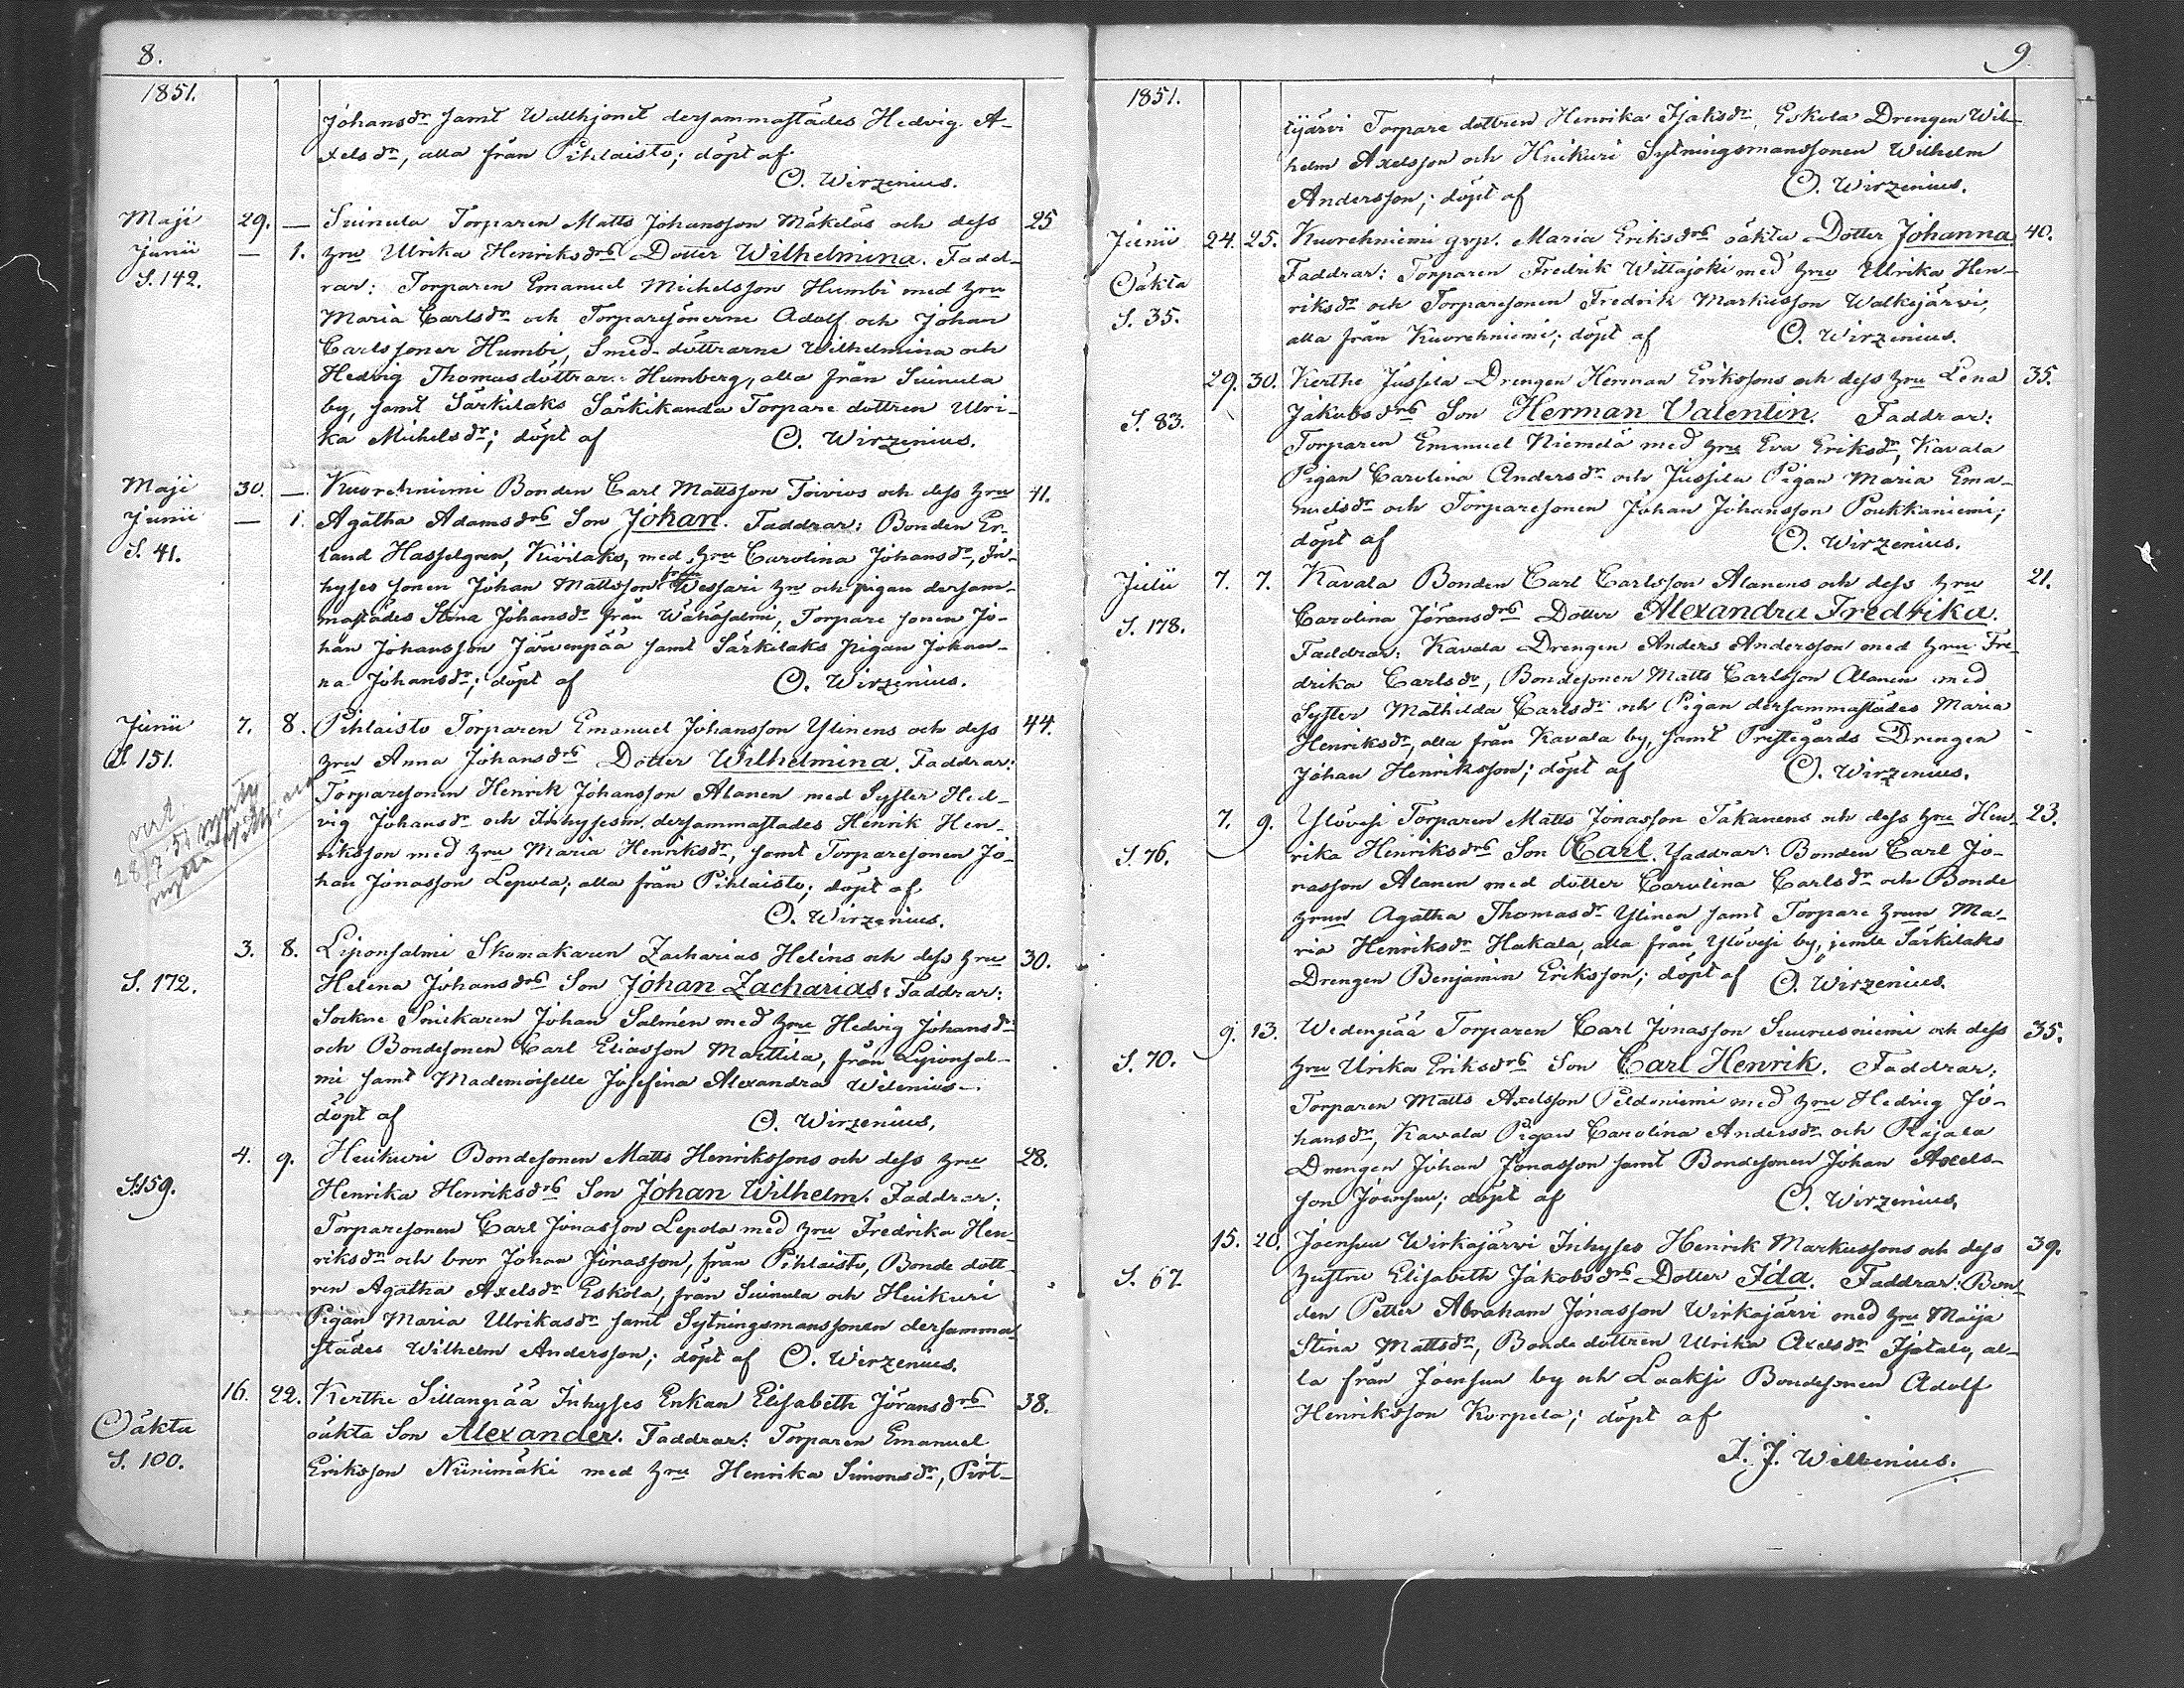 8.
1851.
Johansdr samt Wallhjonet dersammastädes Hedvig A-
xelsdr, alla från Pihlaisto; döpt af
O. Wirzenius.
Maji 29. — Suinula Torparen Matts Johansson Mäkeläs och dess 25
Junii — 1. hru Ulrika Henriksdrs Dotter Wilhelmina. Fadd-
S. 142. rar: Torparen Emanuel Michelsson Humbi med hru
Maria Carlsdr och Torparesönerne Adolf och Johan
Carlssöner Humbi, Smed-döttrarne Wilhelmina och
Hedvig Thomasdöttrar Humberg, alla från Suinula
by, samt Särkilaks Särkikanda Torpare dottren Ulri-
ka Michelsdr; döpt af O. Wirzenius.
Maji 30. — Kuorehniemi Bonden Carl Mattsson Toivios och dess hru 41.
Junii — 1. Agatha Adamsdrs Son Johan. Faddrar: Bonden Er-
S. 41. land Hasselgren, Kuivilaks, med hru Carolina Johansdr, In-
hyses sonen Johan Mattsson från Wessari hn och pigan dersam-
mastädes Stina Johansdr från Wähäsalmi, Torpare sonen Jo-
han Johansson Järvenpää samt Särkilaks pigan Johan-
na Johansdr; döpt af O. Wirzenius.
Junii 7. 8. Pihlaisto Torparen Emanuel Johansson Ylinens och dess 44.
S. 151. hru Anna Johansdrs Dotter Wilhelmina. Faddrar:
Torparesonen Henrik Johansson Alanen med Syster Hed-
28/7 51
vig Johansdr och Inhysesm. dersammastädes Henrik Hen-
riksson med hru Maria Henriksdr, samt Torparesonen Jo-
han Jonasson Lepola; alla från Pihlaisto; döpt af
O. Wirzenius.
3. 8. Liponsalmi Skomakaren Zacharias Heléns och dess hru 30.
S. 172. Helena Johansdrs Son Johan Zacharias; Faddrar:
Sockne Snickaren Johan Salmén med hru Hedvig Johansdr
och Bondesonen Carl Eliasson Marttila, från Liponsal-
mi samt Mademoiselle Josefina Alexandra Wilenius.
döpt af O. Wirzenius.
4. 9. Huikuri Bondesonen Matts Henrikssons och dess hru 28.
S. 159. Henrika Henriksdrs Son Johan Wilhelm. Faddrar:
Torparesonen Carl Jonasson Lepola med hru Fredrika Hen-
riksdr och bror Johan Jonasson, från Pihlaisto, Bonde dott-
ren Agatha Axelsdr Eskola, från Suinula och Huikuri
Pigan Maria Ulrikasdr samt Sytningsmanssonen dersamma-
städes Wilhelm Andersson; döpt af O. Wirzenius.
16. 22. Kerthe Sillanpää Inhyses Enkan Elisabeth Jöransdrs 38.
Oäkta oäkta Son Alexander. Faddrar: Torparen Emanuel
S. 100. Eriksson Niinimäki med hru Henrika Simonsdr, Pirt-
9.
1851.
tijärvi Torpare dottren Henrika Isaksdr, Eskola Drengen Wil-
helm Axelsson och Huikuri Sytningsmanssonen Wilhelm
Andersson; döpt af O. Wirzenius.
Junii 24. 25. Kuorehniemi qvp. Maria Eriksdrs oäkta Dotter Johanna 40.
Oäkta Faddrar: Torparen Fredrik Wittajoki med hru Ulrika Hen-
S. 35. riksdr och Torparesonen Fredrik Markusson Walkejärvi,
alla från Kuorehniemi; döpt af O. Wirzenius.
29. 30. Kerthe Jussila Drengen Herman Erikssons och dess hru Lena 35.
S. 83. Jakobsdrs Son Herman Valentin. Faddrar:
Torparen Emanuel Niemelä med hru Eva Eriksdr, Kavala
Pigan Carolina Andersdr och Jussila Pigan Maria Ema-
nuelsdr och Torparesonen Johan Johansson Poukkaniemi;
döpt af O. Wirzenius.
Julii 7. 7. Kavala Bonden Carl Carlsson Alanens och dess hru 21.
S. 178. Carolina Jöransdrs Dotter Alexandra Fredrika.
Faddrar: Kavala Drengen Anders Andersson med hru Fre-
drika Carlsdr, Bondesonen Matts Carlsson Alanen med
Syster Mathilda Carlsdr och Pigan dersammastädes Maria
Henriksdr, alla från Kavala by, samt Prestegårds Drengen
Johan Henriksson; döpt af O. Wirzenius.
7. 9. Ylövesi Torparen Matts Jonasson Takanens och dess hru Hen- 23.
S. 76. rika Henriksdrs Son Carl. Faddrar: Bonden Carl Jo-
nasson Alanen med dotter Carolina Carlsdr och Bonde
hrun Agatha Thomasdr Ylinen samt Torpare hrun Ma-
ria Henriksdr Hakala, alla från Ylövesi by, jemte Särkilaks
Drengen Benjamin Eriksson; döpt af O. Wirzenius.
9. 13. Wedenpää Torparen Carl Jonasson Suurusniemi och dess 35.
S. 70. hru Ulrika Eriksdrs Son Carl Henrik. Faddrar:
Torparen Matts Axelsson Peldoniemi med hru Hedvig Jo-
hansdr, Kavala Pigan Carolina Andersdr och Rajala
Drengen Johan Jonasson samt Bondesonen Johan Axels-
son Joensuu; döpt af O. Wirzenius.
15. 20. Joensuu Wirkajärvi Inhyses Henrik Markussons och dess 39.
S. 67 hustru Elisabeth Jakobsdrs Dotter Ida. Faddrar: Bon-
den Petter Abraham Jonasson Wirkajärvi med hru Maija
Stina Mattsdr, Bonde dottren Ulrika Axelsdr Isotalo, al-
la från Joensuu by och Laaksi Bondesonen Adolf
Henriksson Korpela; döpt af
J. J. Wilenius.